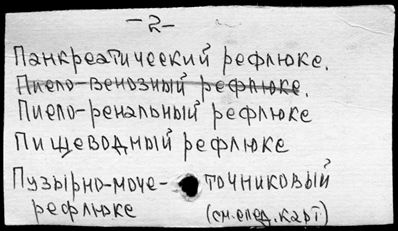 -2-
Панкреатический рефлюкс.
Пиело-венозный рефлюкс.
Пиело-ренальный рефлюкс
Пищеводный рефлюкс
Пузырно-моче-точниковый
рефлюкс (см. след. карт)